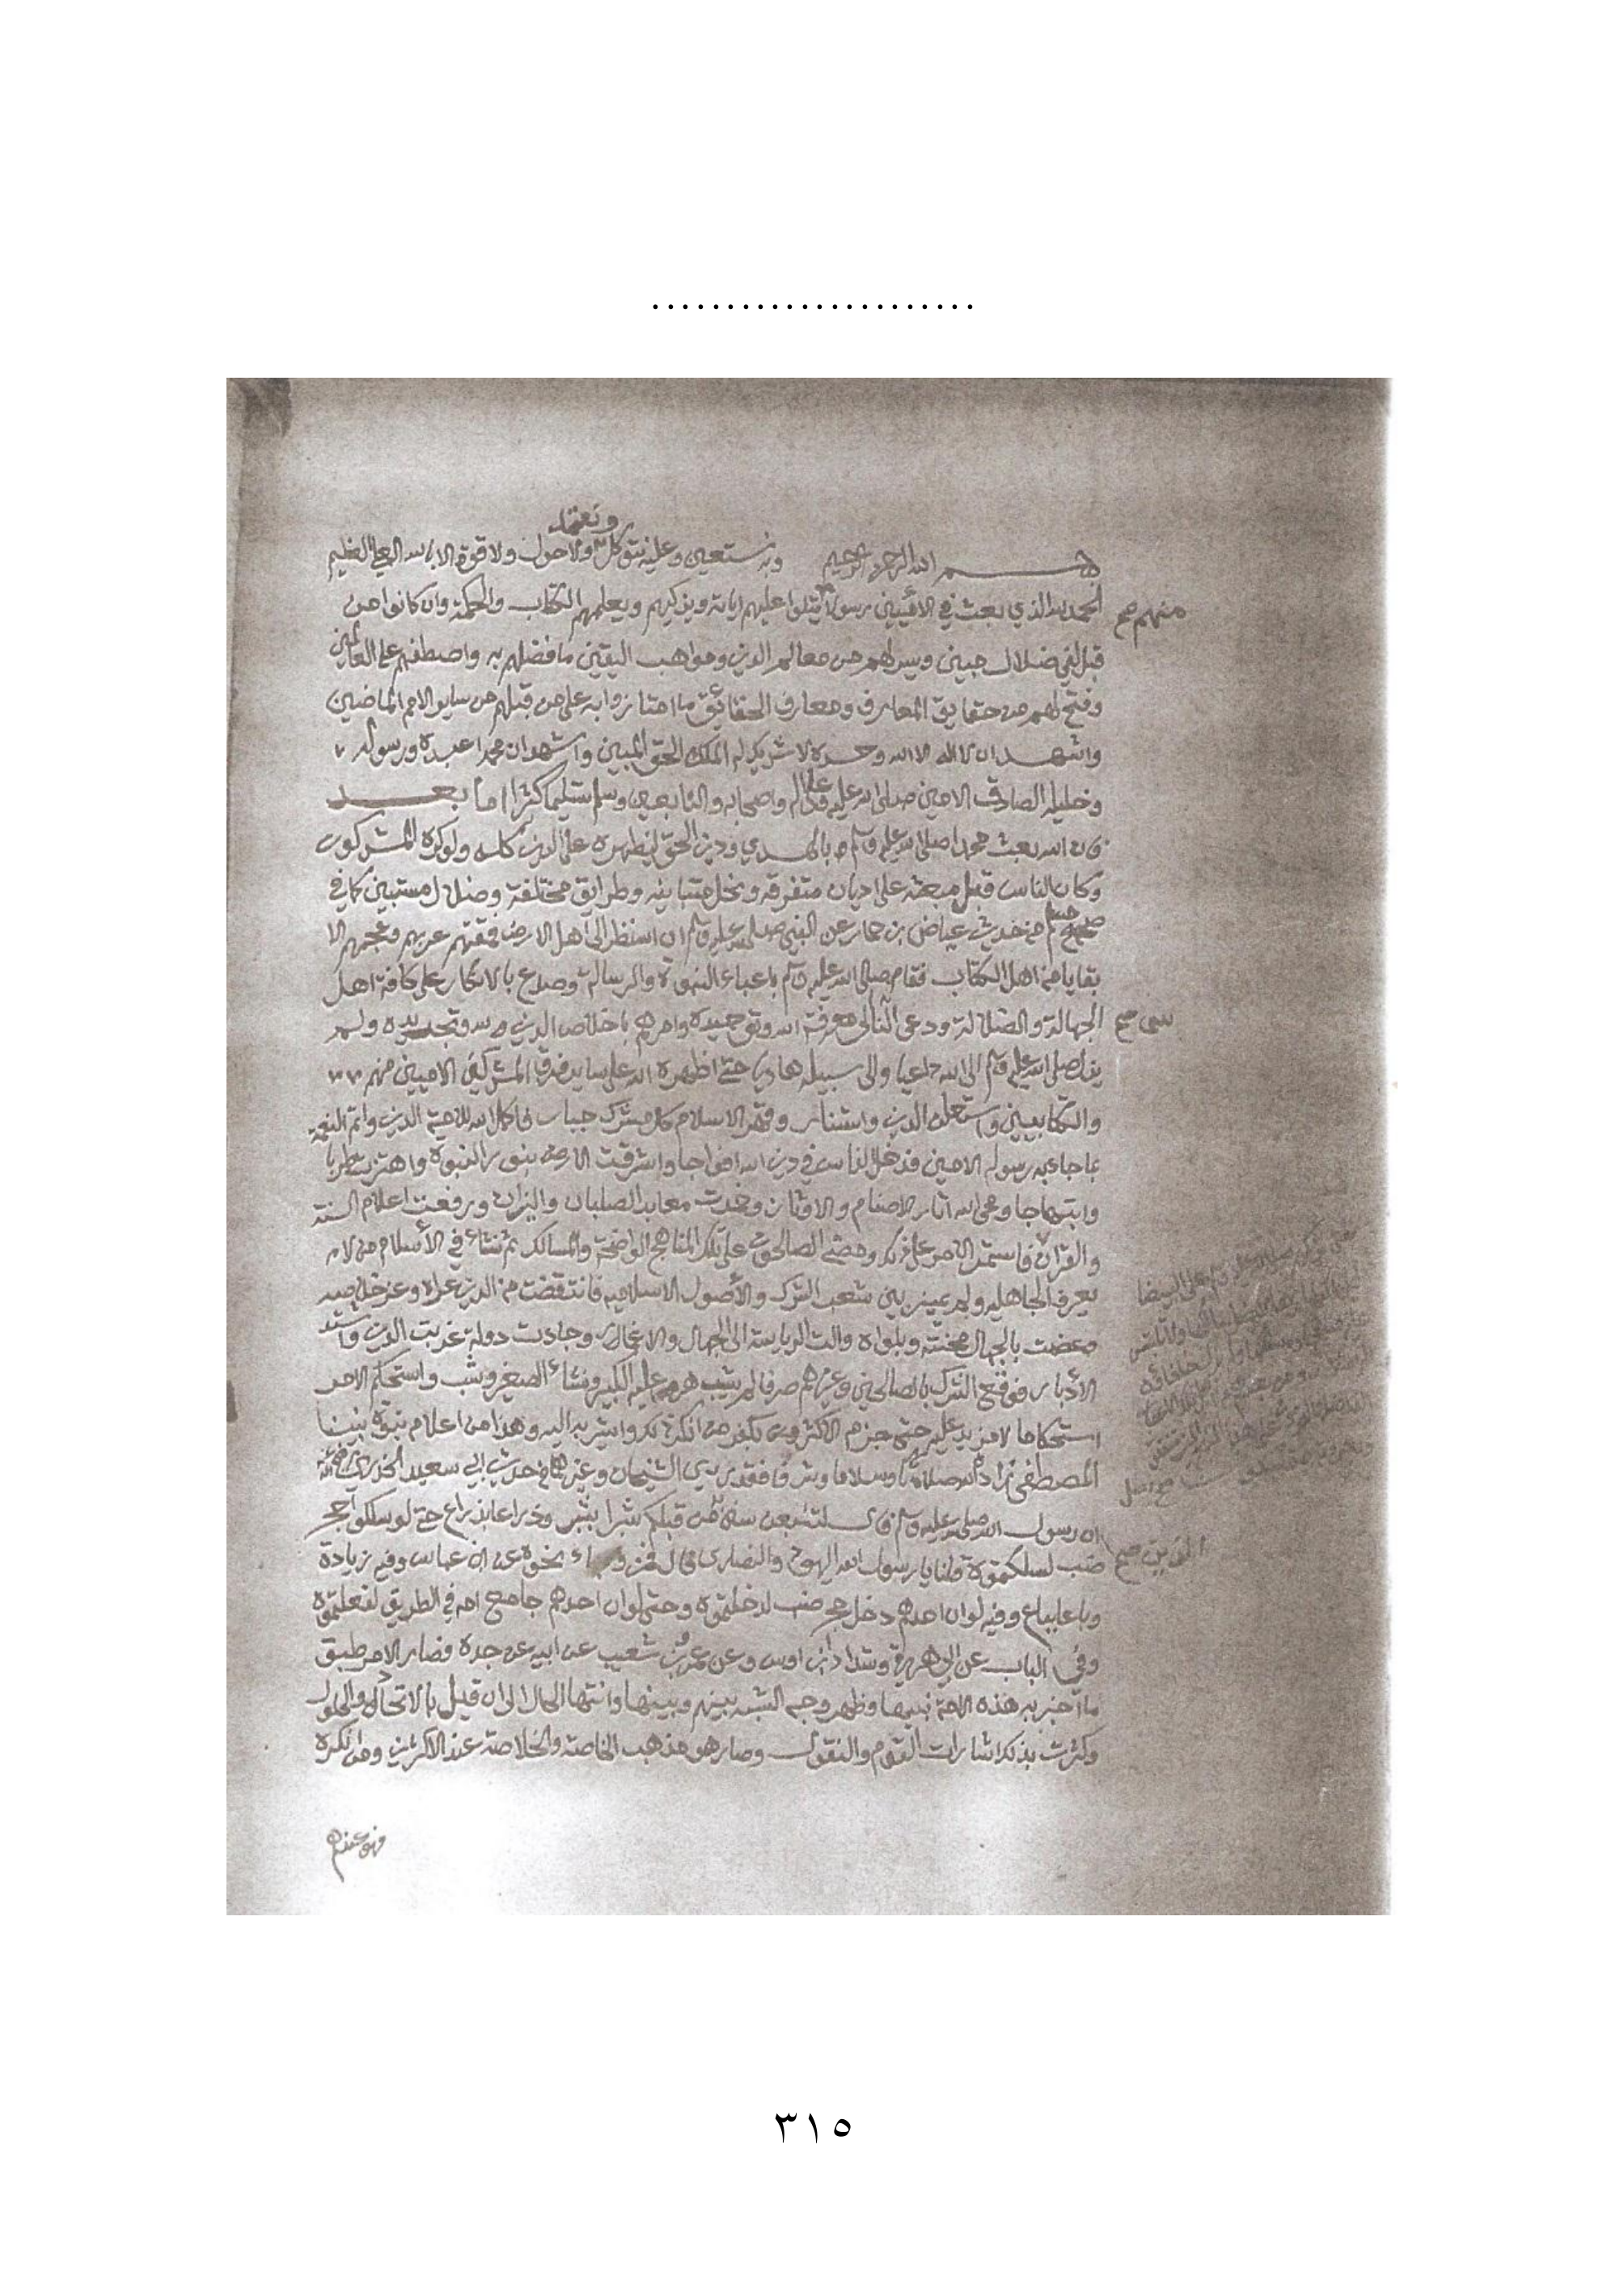 .......................
ونعتمد
بسم الله الرحمن الرحيم وبه نستعين وعليه نتوكل ولا حول ولا قوة الا بالله العلي العظيم
الحمد لله الذي بعث في الاميين رسولا يتلوا عليهم اياته ويزكيهم ويعلمهم الكتاب والحكمة وان كانوا من
منهم صح
قبل لفي ضلال مبين ويسر لهم من معالم الدين ومواهب اليقين ما فضلهم به واصطفهم على العالمين
وفتح لهم من حقايق المعارف ومعارف الحقائق ما امتازوا به على من قبلهم من ساير الامم الماضين
واشهد ان لا اله الا الله وحده لا شريك له الملك الحق المبين واشهد ان محمدا عبده ورسوله
وخليله الصادق الامين صلى الله عليه وعلى اله واصحابه والتابعين وسلم تسليما كثيرا اما بعد
فان الله بعث محمدا صلى الله عليه وسلم بالهدي ودين الحق ليظهره على الدين كله ولو كره المشركون
وكان الناس قبل مبعثه على اديان متفرقه ونحل متباينه وطرايق مختلفة وضلال مستبين كما في
صحيح مسلم من حديث عياض بن حمار عن النبي صلى الله عليه وسلم ان الله نظر الى اهل الارض فمقتهم عربهم وعجمهم الا
بقايا من اهل الكتاب فقام صلى الله عليه وسلم باعباء النبوة والرسالة وصدع بالانكار على كافة اهل
الجهالة والضلالة ودعى الناس الى معرفة الله وتوحيده وامرهم باخلاص الدين لله وتجريده ولم
يزل صلى الله عليه وسلم الى الله داعيا والى سبيله هاديا حتى اظهره الله على ساير فرق المشركين الاميين منهم
والكتابيين واستعلن الدين واستنار وقهر الاسلام كل مشرك جبار فاكمل الله للامة الدين واتم النعمة
بما جاء به رسوله الامين فدخل الناس في دين الله افواجا واشرقت الارض بنور النبوة واهتزت طربا
وابتهاجا ومحى الله اثار الاصنام والاوثان وخمدت معابد الصلبان والنيران ورفعت اعلام السنة
والقرآن فاستمر الامر على ذلك ومضى الصالحون على تلك المناهج الواضحة والمسالك ثم نشاء في الأسلام من لا
يعرف الجاهليه ولم يميز بين شعب الشرك والأصول الاسلاميه فانتقضت من الدين عراه وعز خلاصه
وعضمت بالجهال محنته وبلواه والت الرياسة الى الجهال والاغمار وجاءت دولة غربت الدين
الأدبار فوقع الشرك بالصالحين وغيرهم صرفا لم يشب هرم عليه الكبير ونشاء الصغير وشب واستحكم الامر
استحكاما لا مزيد عليه حتى جزم الاكثرون بكفر من انكر ذلك واشير به اليه وهذا من اعلام نبوة نبينا
المصطفى زاده الله صلاة وسلاما وشرفا فقد روى الشيخان وغيرهما في حديث ابي سعيد الخدري رضي الله عنه
ان رسول الله صلى الله عليه وسلم قال لتتبعن سنن من قبلكم شبرا بشبر وذراعا بذراع حتى لو سلكوا جحر
ضب لسلكتموه قلنا يا رسول الله اليهود والنصارى قال فمن وجاء نحوه عن ابن عباس وفيه زيادة
وباعا بباع وفيه لو ان احدهم دخل جحر ضب لدخلتموه وحتى لو ان احدهم جامع امه في الطريق لفعلتموه
وفي الباب عن ابي هريرة وشداد ابن اوس وعن عمرو بن شعيب عن ابيه عن جده فصار الامر طبق
ما اخبر به هذه الامة نبيها وظهر وجه الشبه بينهم وبينها وانتها الحال الى ان قيل بالاتحاد والحلول
وكثرت بذلك اشارات القوم والنقول وصار هو مذهب الخاصة والخلاصة عند الاكثرين ومن انكره
فهو عندهم
٣١٥